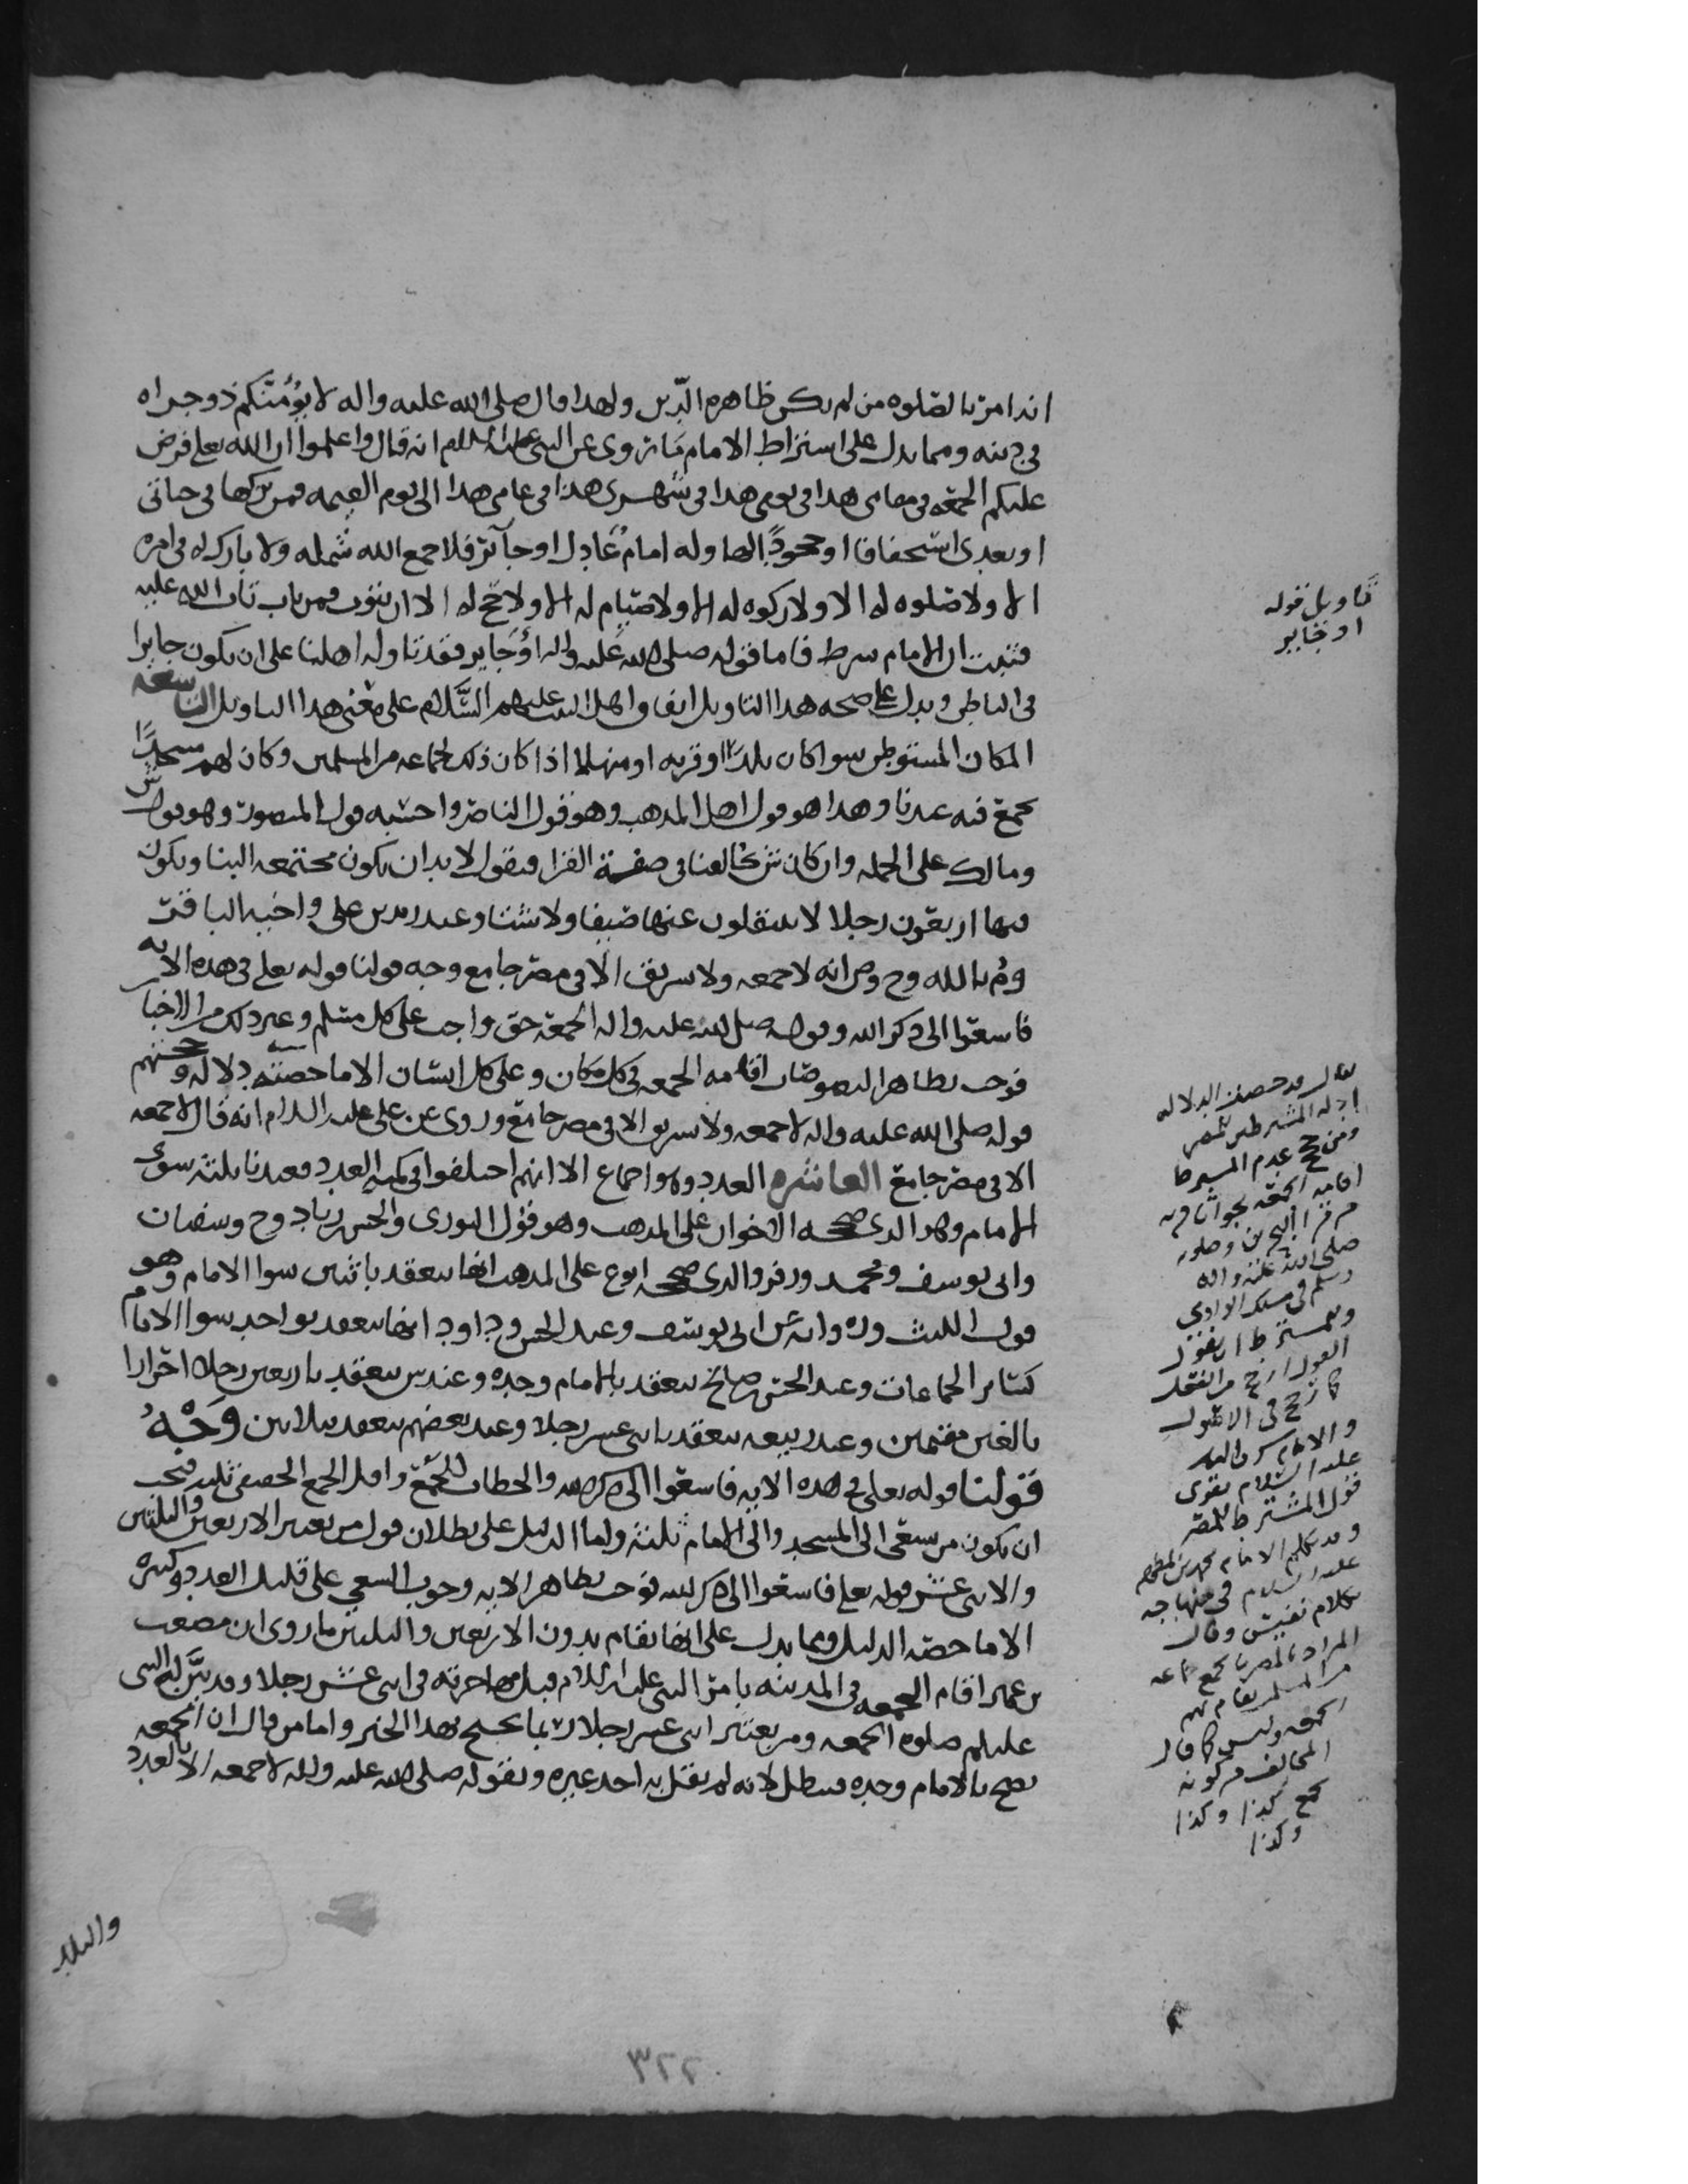 ايذا من بالصلوه من لم يكن ظاهره الدين ولهذا قال صلى الله عليه واله لا يؤمنكم ذو جراه
في دينه ومما يدل على اشتراط الامام ما روى عن النبي عليه السلام انه قال واعلموا ان الله تعلى فرض
عليكم الجمعه في مقامي هذا في يومي هذا في شهري هذا في عامي هذا الى يوم القيمه فمن تركها في حياتي
او بعدي استخفافا او جحودًا لها وله امام عادل او جائر فلا جمع الله شمله ولا بارك له في امره
الا ولا صلوه له الا ولا زكوه له الا ولا صيام له الا ولا حج له الا ان يتوب فمن تاب تاب الله عليه
فثبت ان الامام شرط فاما قوله صلى الله عليه واله او جاير فقد تاوله اهلنا على ان يكون جايرا
في الباطن ويدل على صحه هذا التاويل اتفاق اهل البيت عليهم السلام على معنى هذا التاويل التاسعه
المكان المستوطن سوا كان بلدًا او قريه او منهلا اذا كان ذلك لجماعه من المسلمين وكان لهم مسجدًا
يجمع فيه عندنا وهذا هو قول اهل المذهب وهو قول الناصر واحتسبه قول المنصور وهو قول ش
ومالك على الجمله وان كان ش يخالفنا في صفة القرا فيقول لا بد ان يكون مجتمعه البنا ويكون
فيها اربعون رجلا لا ينتقلون عنها صيفا ولا شتا وعند زيد بن علي واخيه الباقر
وم بالله وح وص انه لا جمعه ولا تشريق الا في مصر جامع وجه قولنا قوله تعلى في هذه الايه
فاسعوا الى ذكر الله وقوله صلى الله عليه واله الجمعه حق واجب على كل مسلم وغير ذلك من الاخبار
فوجب بظاهر النصوصات اقامه الجمعه في كل مكان وعلى كل انسان الا ما خصته دلاله وحجتهم
قوله صلى الله عليه واله لا جمعه ولا تشريق الا في مصر جامع وروى عن علي عليه السلام انه قال لا جمعه
الا في مصر جامع العاشره العدد وهو اجماع الا انهم اختلفوا في كميه العدد فعندنا ثلثه سوى
الامام وهو الذي صححه الاخوان على المذهب وهو قول الثوري والحسن بن زياد وح وسفيان
وابي يوسف ومحمد وزفر والذي صححه ابو ع على المذهب انها تنعقد باثنين سوا الامام وهو
قول الليث وروايه عن ابي يوسف وعند الحسن وداود انها تنعقد بواحد سوا الامام
كسائر الجماعات وعند الحسن بن صالح تنعقد بالامام وحده وعند ش تنعقد باربعين رجلا احرارا
بالغين مقيمين وعند ربيعه تنعقد باثني عشر رجلا وعند بعضهم تنعقد بثلاثين وَجْهُ
قولنا قوله تعلى في هذه الايه فاسعوا الى ذكر الله والخطاب للجمع واقل الجمع الحقيقي ثلثه فيجب
ان يكون من يسعى الى المسجد والى الامام ثلثه واما الدليل على بطلان قول من يعتبر الاربعين والثلثين
والاثني عشر قوله تعلى فاسعوا الى ذكر الله فوجب بظاهر الايه وجوب السعي على قليل العدد وكثيره
الا ما خصه الدليل ومما يدل على انها تقام بدون الاربعين والثلثين ما روى ان مصعب
بن عمير اقام الجمعه في المدينه بامر النبي عليه السلام قبل مهاجرته في اثني عشر رجلا وقد بيّن لهم النبي
عليلم صلوه الجمعه ومن يعتبر اثني عشر رجلا ربما يحتج بهذا الخبر واما من قال ان الجمعه
تصح بالامام وحده فيبطل لانه لم يقل به احد غيره وبقوله صلى الله عليه واله لا جمعه الا بالعدد
تاويل قوله
او جاير
يقال قد خصت الدلاله
ادله المشترطين للمصر
ومن حج عدم المشترطا
اقامه الجمعه بجواثا قريه
من قرا البحرين وصلوته
صلى الله عليه واله
وسلم في مسجد الوادي
القول ارجح من الفعل
في الاصول
عليه السلام يقوي
قول المشترط للمصر
وقد تكلم الامام محمد بن المطهر
عليه السلام في منهاجه
بكلام نفيس وقال
المراد بالمصر ما يجمع جماعه
من المسلمين تقام بهم
الجمعه وليس كما قال
المخالف من كونه
يجمع كذا وكذا
وكذا
٣٢٢